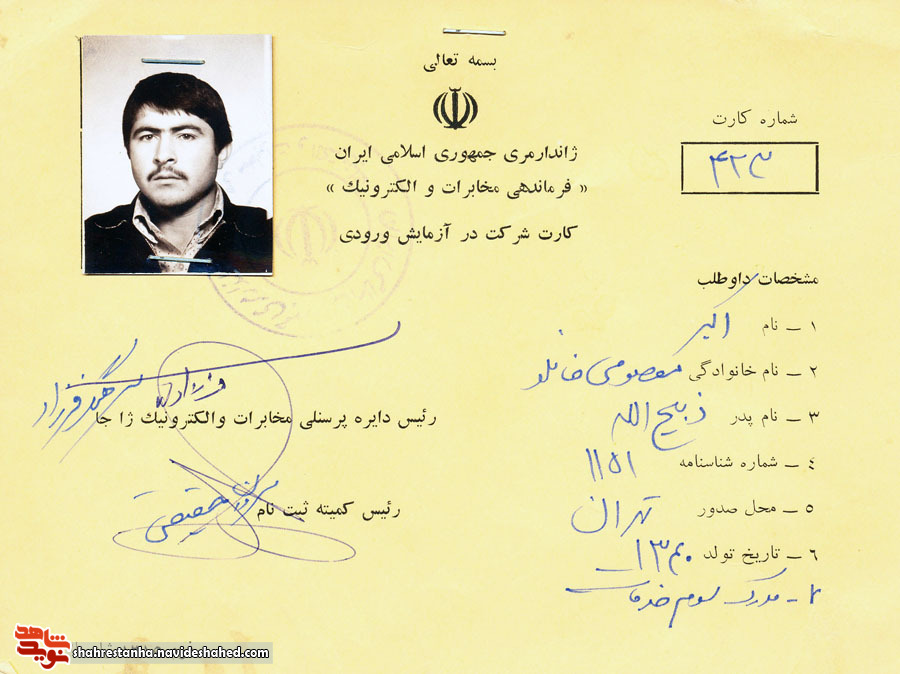 بسمه تعالی
ژاندارمری جمهوری اسلامی ایران
« فرماندهی مخابرات و الکترونیك »
کارت شرکت در آزمایش ورودی
شماره کارت
۴۲۳
مشخصات داوطلب
۱ ــ نام اکبر
۲ ــ نام خانوادگی معصومی خانلو
۳ ــ نام پدر ذبیح الله
٤ ــ شماره شناسنامه ۱۱۵۱
۵ ــ محل صدور تهران
٦ ــ تاریخ تولد ۱۳۴۰
۷ - مدرک سوم خدمات
سرهنگ فرزاد
رئیس دایره پرسنلی مخابرات والکترونیك ژا جا
رئیس کمیته ثبت نام
شاهد
نوید
shahrestanha.navideshahed.com